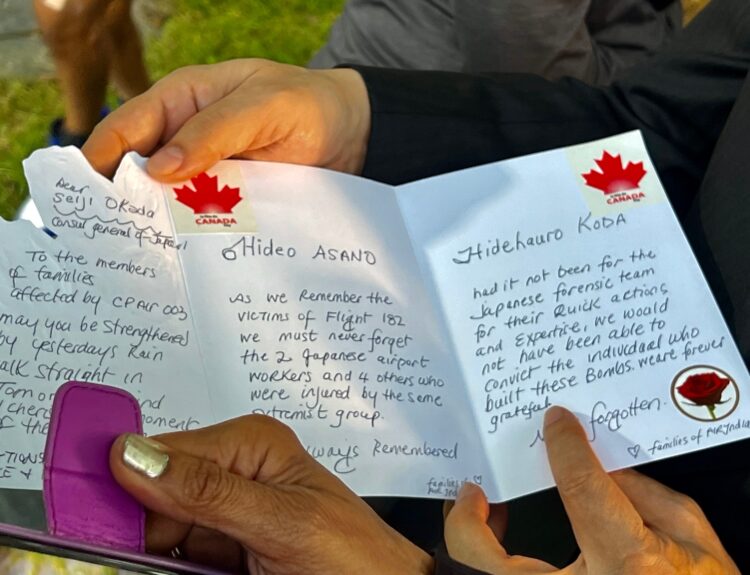 Dear
Seiji Okada
Consul general of Japan
To the members
of families
affected by CPAir 003
may you be strengthened
by yesterdays Rain
walk straight in
CANADA
Hideo ASANO
As we Remember the
victims of Flight 182
we must never forget
the 2 Japanese airport
workers and 4 others who
were injured by the same
Extremist group.
Always Remembered
CANADA
Hidehauro KODA
had it not been for the
Japanese forensic team
for their Quick actions
and Expertise, we would
not have been able to
convict the individual who
built these Bombs. weare forever
grateful
forgotten.
families of AIRIndia